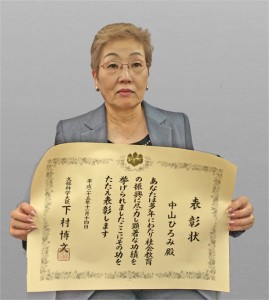 表彰状
中山ひろみ殿
あなたは多年にわたり社会教育
の振興に尽力し顕著な功績を
挙げられましたここにその功を
たたえ表彰します
平成二十五年十一月十四日
文部科学大臣 下村博文